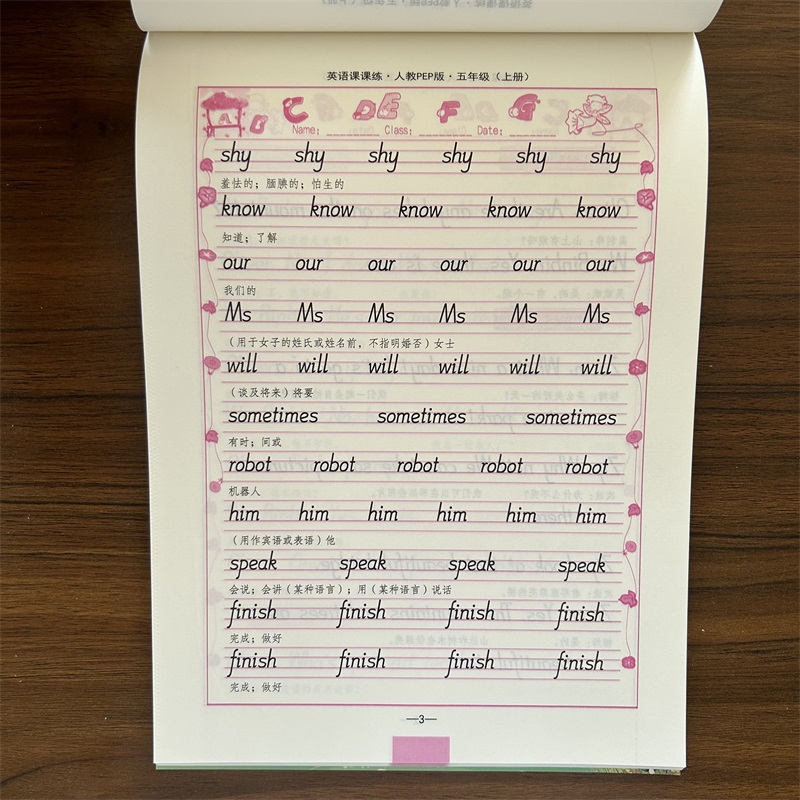 英语课课练·人教PEP版·五年级（上册）
C DE F G
Name: Class: Date:
shy shy shy shy shy shy
羞怯的；腼腆的；怕生的
know know know know know
知道；了解
our our our our our our
我们的
Ms Ms Ms Ms Ms Ms
（用于女子的姓氏或姓名前，不指明婚否）女士
will will will will will will
（谈及将来）将要
sometimes sometimes sometimes
有时；间或
robot robot robot robot robot
机器人
him him him him him him
（用作宾语或表语）他
speak speak speak speak
会说；会讲（某种语言）；用（某种语言）说话
finish finish finish finish
完成；做好
finish finish finish finish
完成；做好
—3—